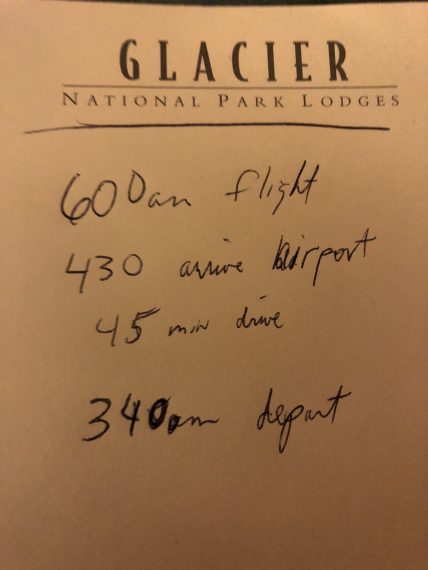 GLACIER
NATIONAL PARK LODGES
600am flight
430 arrive airport
45 min drive
340am depart